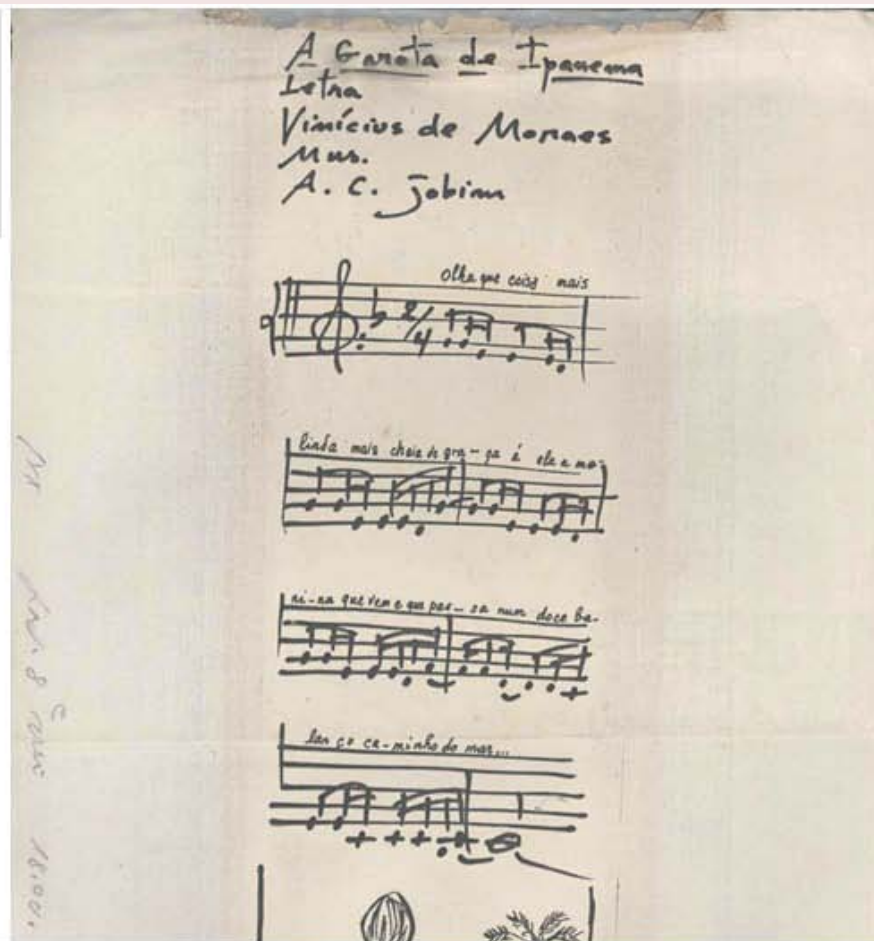 A Garota de Ipanema
Letra
Vinícius de Moraes
Mus.
A. C. Jobim
Olha que coisa mais
2/4
linda mais cheia de gra-ça é ela a me-
ni-na que vem e que pas-sa num doce ba-
lan ço ca-minho do mar...
18:00.